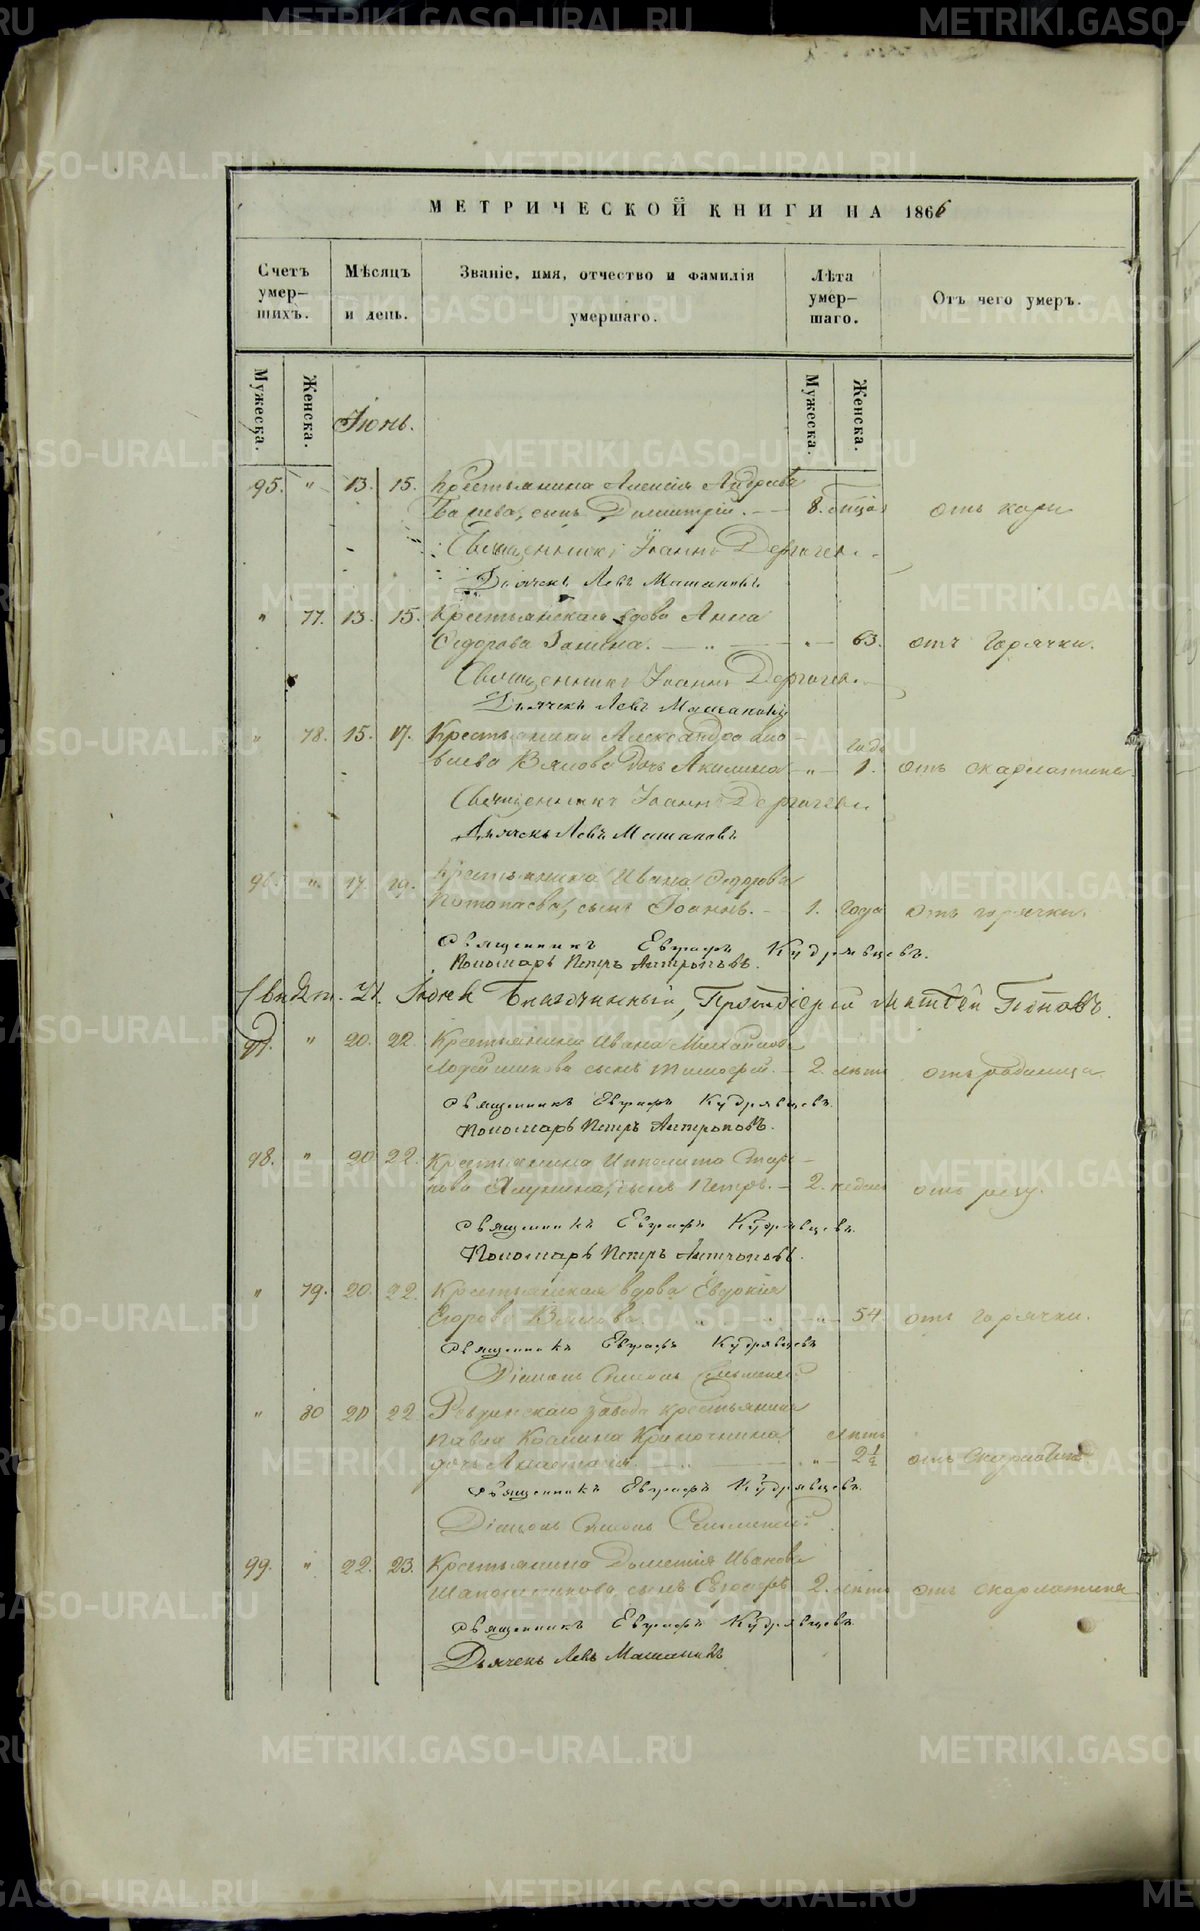 МЕТРИЧЕСКОЙ КНИГИ НА 1866
Счетъ умер–шихъ.
Мѣсяцъ и день.
Званіе, имя, отчество и фамилія умершаго.
Лѣта умер–шаго.
Отъ чего умеръ.
Мужеска.
Женска.
Мужеска.
Женска.
Іюнь.
95. " 13. 15. Крестьянина Алексія Андреева
сынъ Димитрій. 8. отъ кори
Священникъ Іоаннъ Дергачевъ.
Дьячекъ Левъ Машановъ.
" 77. 13. 15. Крестьянская вдова Анна
Федорова Занина. " 63. отъ горячки.
Священникъ Іоаннъ Дергачевъ.
Дьячекъ Левъ Машановъ
" 78. 15. 17. Крестьянина Александра
года
дочь Акилина " 1. отъ скарлатины
Священникъ Іоаннъ Дергачевъ.
Дьячекъ Левъ Машановъ
96. " 17. 19. Крестьянина Ивана Федорова
Потопаева, сынъ Іоаннъ. 1. года отъ горячки.
Священникъ Евграфъ Кудрявцевъ.
Пономарь Петръ Антроповъ.
Свидѣт. 21. Іюня Благочинный, Протоіерей Матвѣй Поповъ.
97. " 20. 22. Крестьянина Ивана Михайлова
сынъ Тимофей. 2. лѣтъ отъ родимца.
Священникъ Евграфъ Кудрявцевъ.
Пономарь Петръ Антроповъ.
98. " 20 22. Крестьянина Ипполита
сынъ Петръ. 2. недель отъ резу.
Священникъ Евграфъ Кудрявцевъ.
Пономарь Петръ Антроповъ.
" 79. 20. 22. Крестьянская вдова Евдокія
Егорова " " " 54 отъ горячки.
Священникъ Евграфъ Кудрявцевъ
Діаконъ Симеонъ
" 80 20 22 Ревдинскаго завода крестьянина
Павла Космина лѣтъ
дочь Анастасія. " " 2½ отъ
Священникъ Евграфъ Кудрявцевъ.
Діаконъ Симеонъ
99. " 22. 23. Крестьянина Дометія Иванова
Шапошникова сынъ 2. лѣтъ отъ скарлатины
Священникъ Евграфъ Кудрявцевъ.
Дьячекъ Левъ Машановъ
METRIKI.GASO-URAL.RU